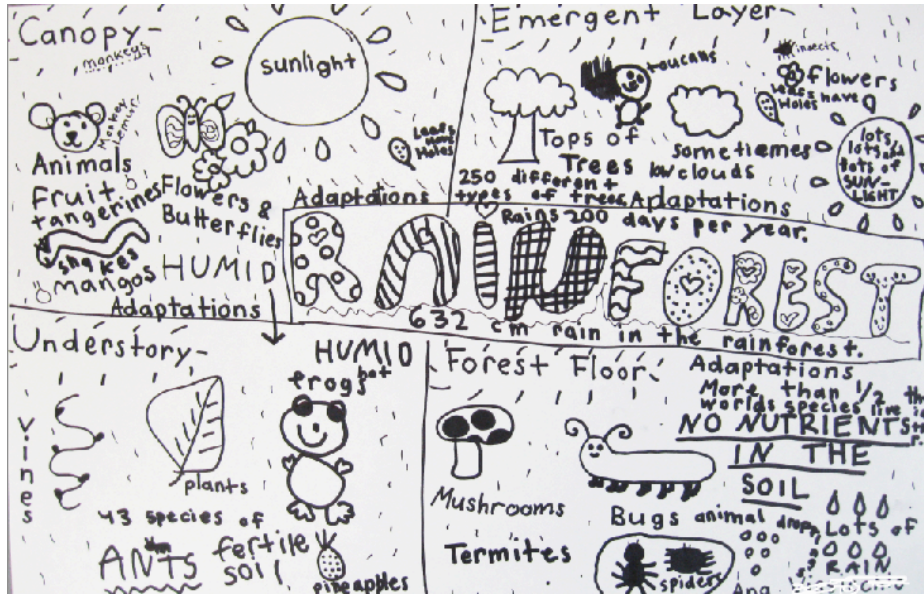 Canopy-
monkeys
sunlight
Monkey
Lemurs!
Leafs
have
Holes
Animals
Fruit
tangerines
Flowers &
Butterflies
snakes
mangos
HUMID
Adaptations
Adaptations
Emergent Layer-
toucans
insects
flowers
leafs have
Holes
Tops of
Trees
sometiemes
low clouds
lots,
lots, and
lots of
SUN-
LIGHT
250 different
types of trees
Adaptations
Rains 200 days per year.
RAINFOREST
632 cm rain in the rainforest.
Understory-
HUMID
hot
frogs
vines
plants
43 species of
ANTS
fertile
soil
pineapples
Forest Floor-
Adaptations
More than 1/2 the
worlds species live
NO NUTRIENTS
IN THE
SOIL
Mushrooms
Bugs
animal
Lots of
RAIN
Termites
spiders